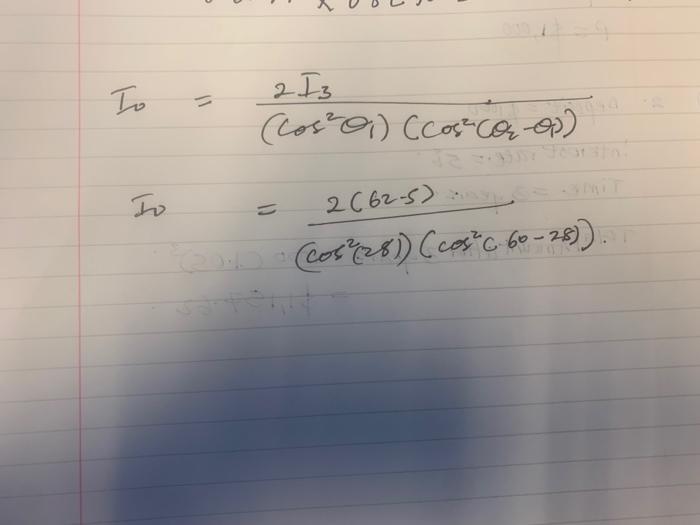 I₀ = 2I₃ / (cos²θ₁) (cos²(θ₂-θ₁))
I₀ = 2(62-5) / (cos²(28)) (cos²(60-28)).